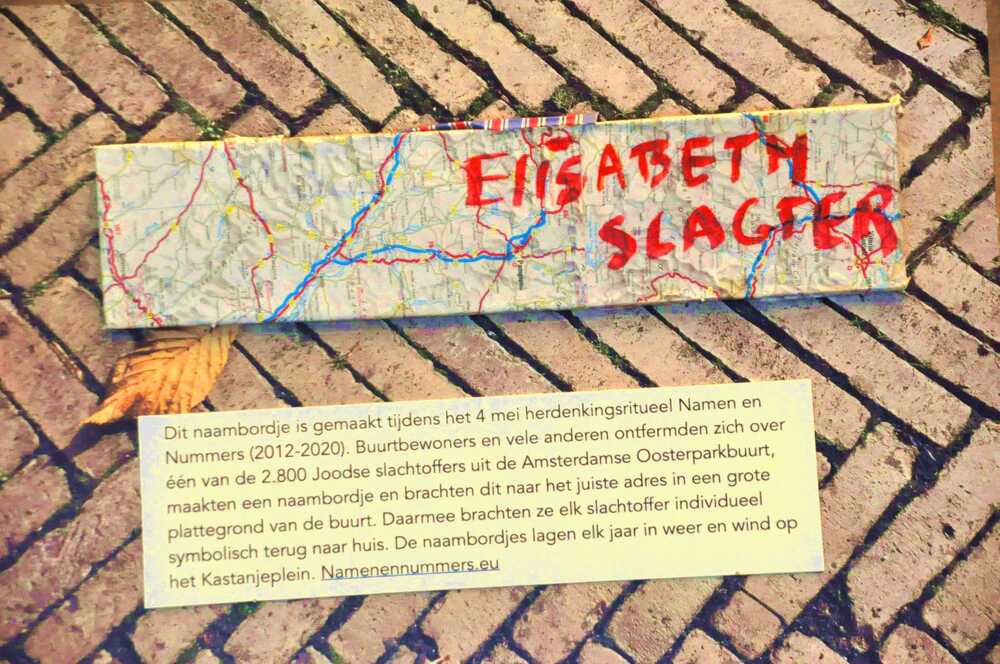 ElisABETH
SLAGTER
Dit naambordje is gemaakt tijdens het 4 mei herdenkingsritueel Namen en
Nummers (2012-2020). Buurtbewoners en vele anderen ontfermden zich over
één van de 2.800 Joodse slachtoffers uit de Amsterdamse Oosterparkbuurt,
maakten een naambordje en brachten dit naar het juiste adres in een grote
plattegrond van de buurt. Daarmee brachten ze elk slachtoffer individueel
symbolisch terug naar huis. De naambordjes lagen elk jaar in weer en wind op
het Kastanjeplein. Namenennummers.eu